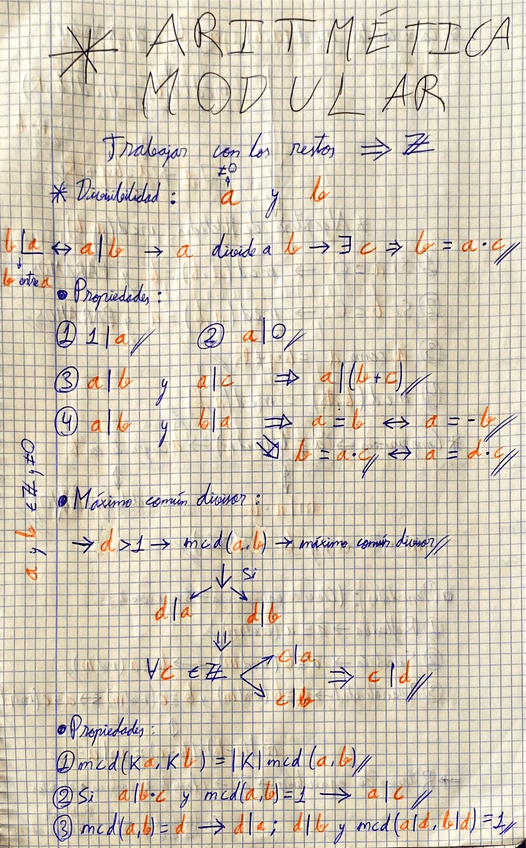 * ARITMÉTICA
MODULAR
Trabajar con los restos ⇒ ℤ
* Divisibilidad: a y b
≠0
b|a ↔ a|b → a divide a b → ∃ c ⇒ b = a·c //
b entre a
• Propiedades:
① 1|a // ② a|0 //
③ a|b y a|c ⇒ a|(b+c) //
④ a|b y b|a ⇒ a = b ↔ a = -b //
⇘ b = a·c // ↔ a = d·c //
a y b ∈ ℤ y ≠0
• Máximo común divisor:
→ d>1 → mcd(a,b) → máximo común divisor //
↓ Si
d|a d|b
⇓
∀c ∈ ℤ c|a ⇒ c|d //
c|b
• Propiedades:
① mcd(Ka, Kb) = |K| mcd (a,b) //
② Si a|b·c y mcd(a,b)=1 → a|c //
③ mcd(a,b)=d → d|a; d|b y mcd(a|d, b|d)=1 //